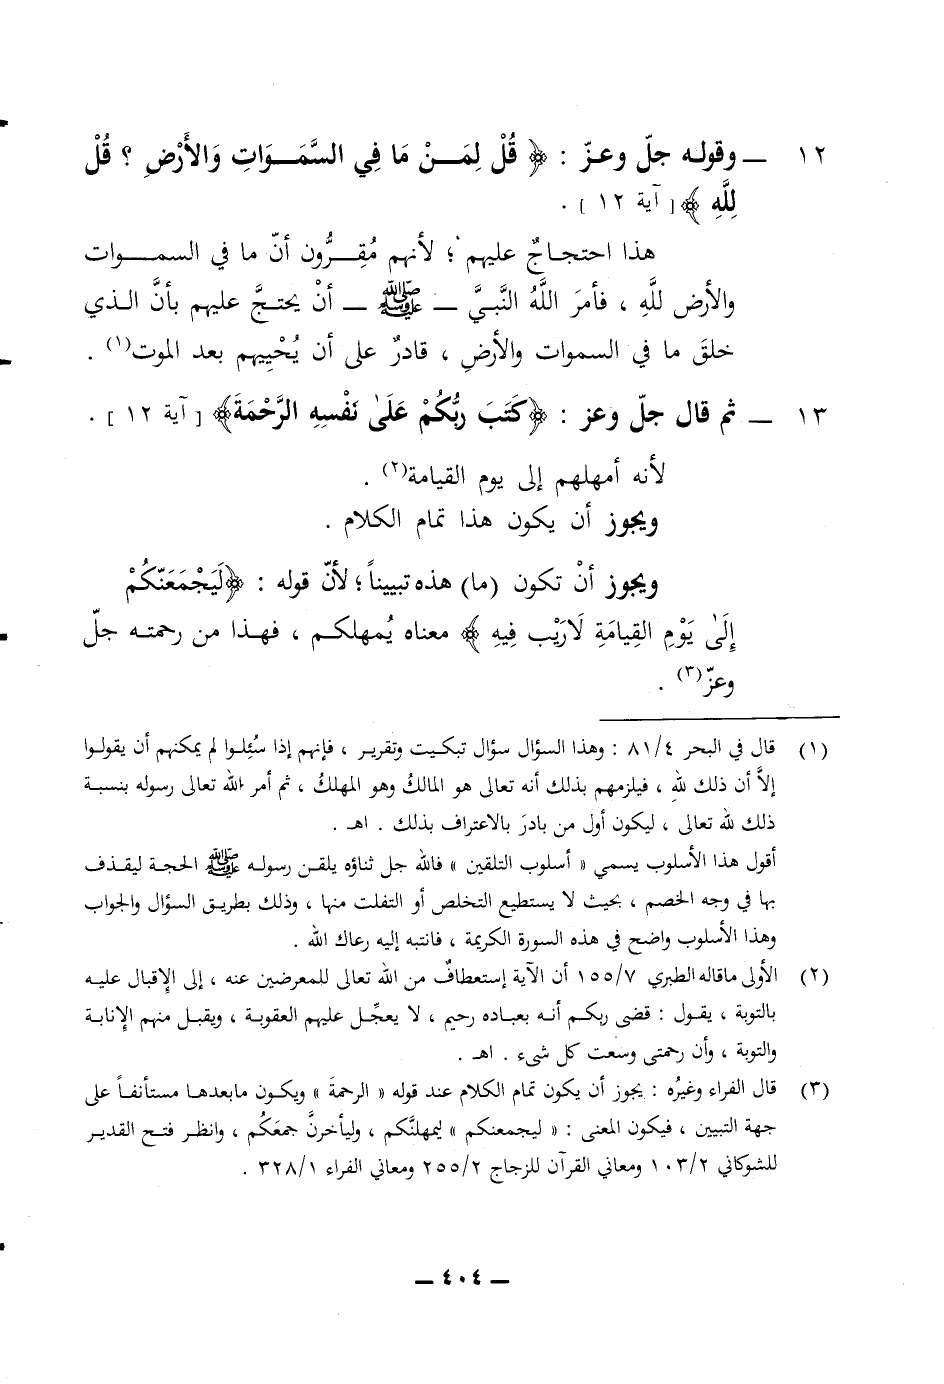 ١٢ ــ وقوله جلّ وعزّ : ﴿ قُلْ لِمَـنْ مَا فِي السَّمَـوَاتِ وَالأَرْضِ ؟ قُلْ
لِلَّهِ ﴾ [ آية ١٢ ] .
هذا احتجاجٌ عليهم ؛ لأنهم مُقِـرُّون أنّ ما في السمـوات
والأرض للَّهِ ، فأمرَ اللَّهُ النَّبيَّ ــ ﷺ ــ أنْ يحتجَّ عليهم بأنَّ الـذي
خلقَ ما في السموات والأرضِ ، قادرٌ على أن يُحْيِيهم بعد الموت(١) .
١٣ ــ ثم قال جلّ وعز : ﴿كَتَبَ رَبُّكُمْ عَلَىٰ نَفْسِهِ الرَّحْمَةَ﴾ [ آية ١٢ ] .
لأنه أمهلهم إلى يوم القيامة(٢) .
ويجوز أن يكون هذا تمام الكلام .
ويجوز أنْ تكون (ما) هذه تبييناً ؛ لأنّ قوله : ﴿لَيَجْمَعَنّكُمْ
إِلَىٰ يَوْمِ القِيامَةِ لَارَيْبَ فِيهِ ﴾ معناه يُمهلكـم ، فهـذا من رحمتـه جلّ
وعزّ(٣) .
(١) قال في البحر ٨١/٤ : وهذا السؤال سؤال تبكيت وتقرير ، فإنهم إذا سُئِلـوا لم يمكنهم أن يقولـوا
إلاَّ أن ذلك للهِ ، فيلزمهم بذلك أنه تعالى هو المالكُ وهو المهلكُ ، ثم أمر الله تعالى رسوله بنسبـة
ذلك لله تعالى ، ليكون أول من بادرَ بالاعتراف بذلك . اهـ .
أقول هذا الأسلوب يسمي « أسلوب التلقين » فالله جل ثناؤه يلقـن رسولـه ﷺ الحجـة ليقـذف
بها في وجه الخصم ، بحيث لا يستطيع التخلص أو التفلت منها ، وذلك بطريق السؤال والجواب
وهذا الأسلوب واضح في هذه السورة الكريمة ، فانتبه إليه رعاك الله .
(٢) الأولى ماقاله الطبري ١٥٥/٧ أن الآية إستعطافٌ من الله تعالى للمعرضين عنه ، إلى الإقبال عليـه
بالتوبة ، يقـول : قضى ربكـم أنـه بعبـاده رحيم ، لا يعجِّـل عليهم العقوبـة ، ويقبـل منهم الإنابـة
والتوبة ، وأن رحمتى وسعت كل شىء . اهـ .
(٣) قال الفراء وغيرُه : يجوز أن يكون تمام الكلام عند قوله « الرحمةَ » ويكـون مابعدهـا مستأنفـاً على
جهة التبيين ، فيكون المعنى : « ليجمعنكم » ليمهلنَّكم ، وليأخرنَّ جمعَكُم ، وانظر فتـح القديـر
للشوكاني ١٠٣/٢ ومعاني القرآن للزجاج ٢٥٥/٢ ومعاني الفراء ٣٢٨/١ .
ــ ٤٠٤ ــ